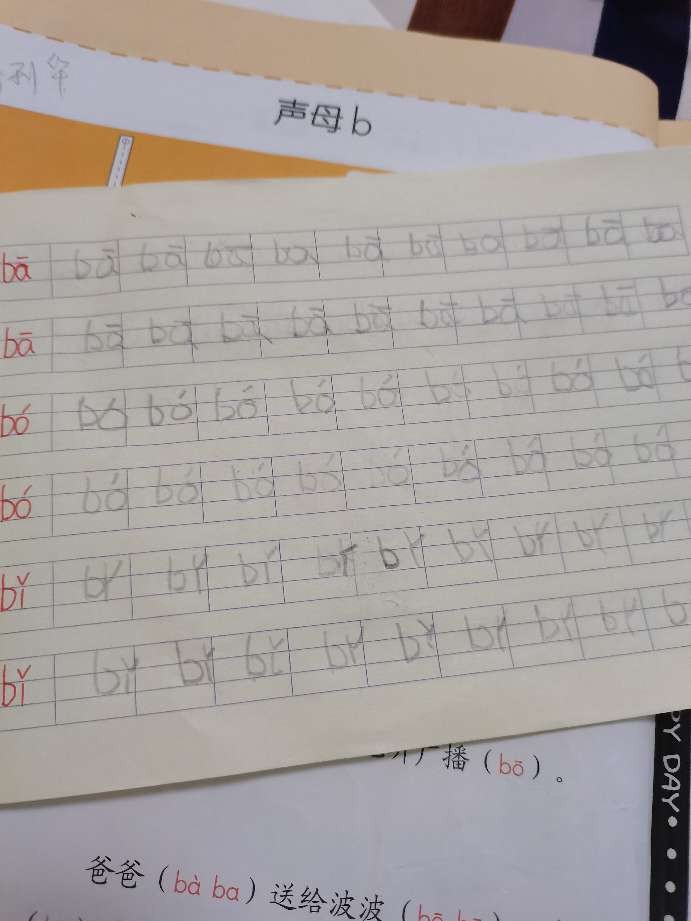 声母b
bā bā bā bā bā bā bā bā bā bā bā
bā bā bā bā bā bā bā bā bā bā
bó bó bó bó bó bó bó bó bó bó
bó bó bó bó bó bó bó bó bó bó
bǐ bǐ bǐ bǐ bǐ bǐ bǐ bǐ bǐ bǐ
bǐ bǐ bǐ bǐ bǐ bǐ bǐ bǐ bǐ
播（bō）。
DAY
爸爸（bà ba）送给波波（